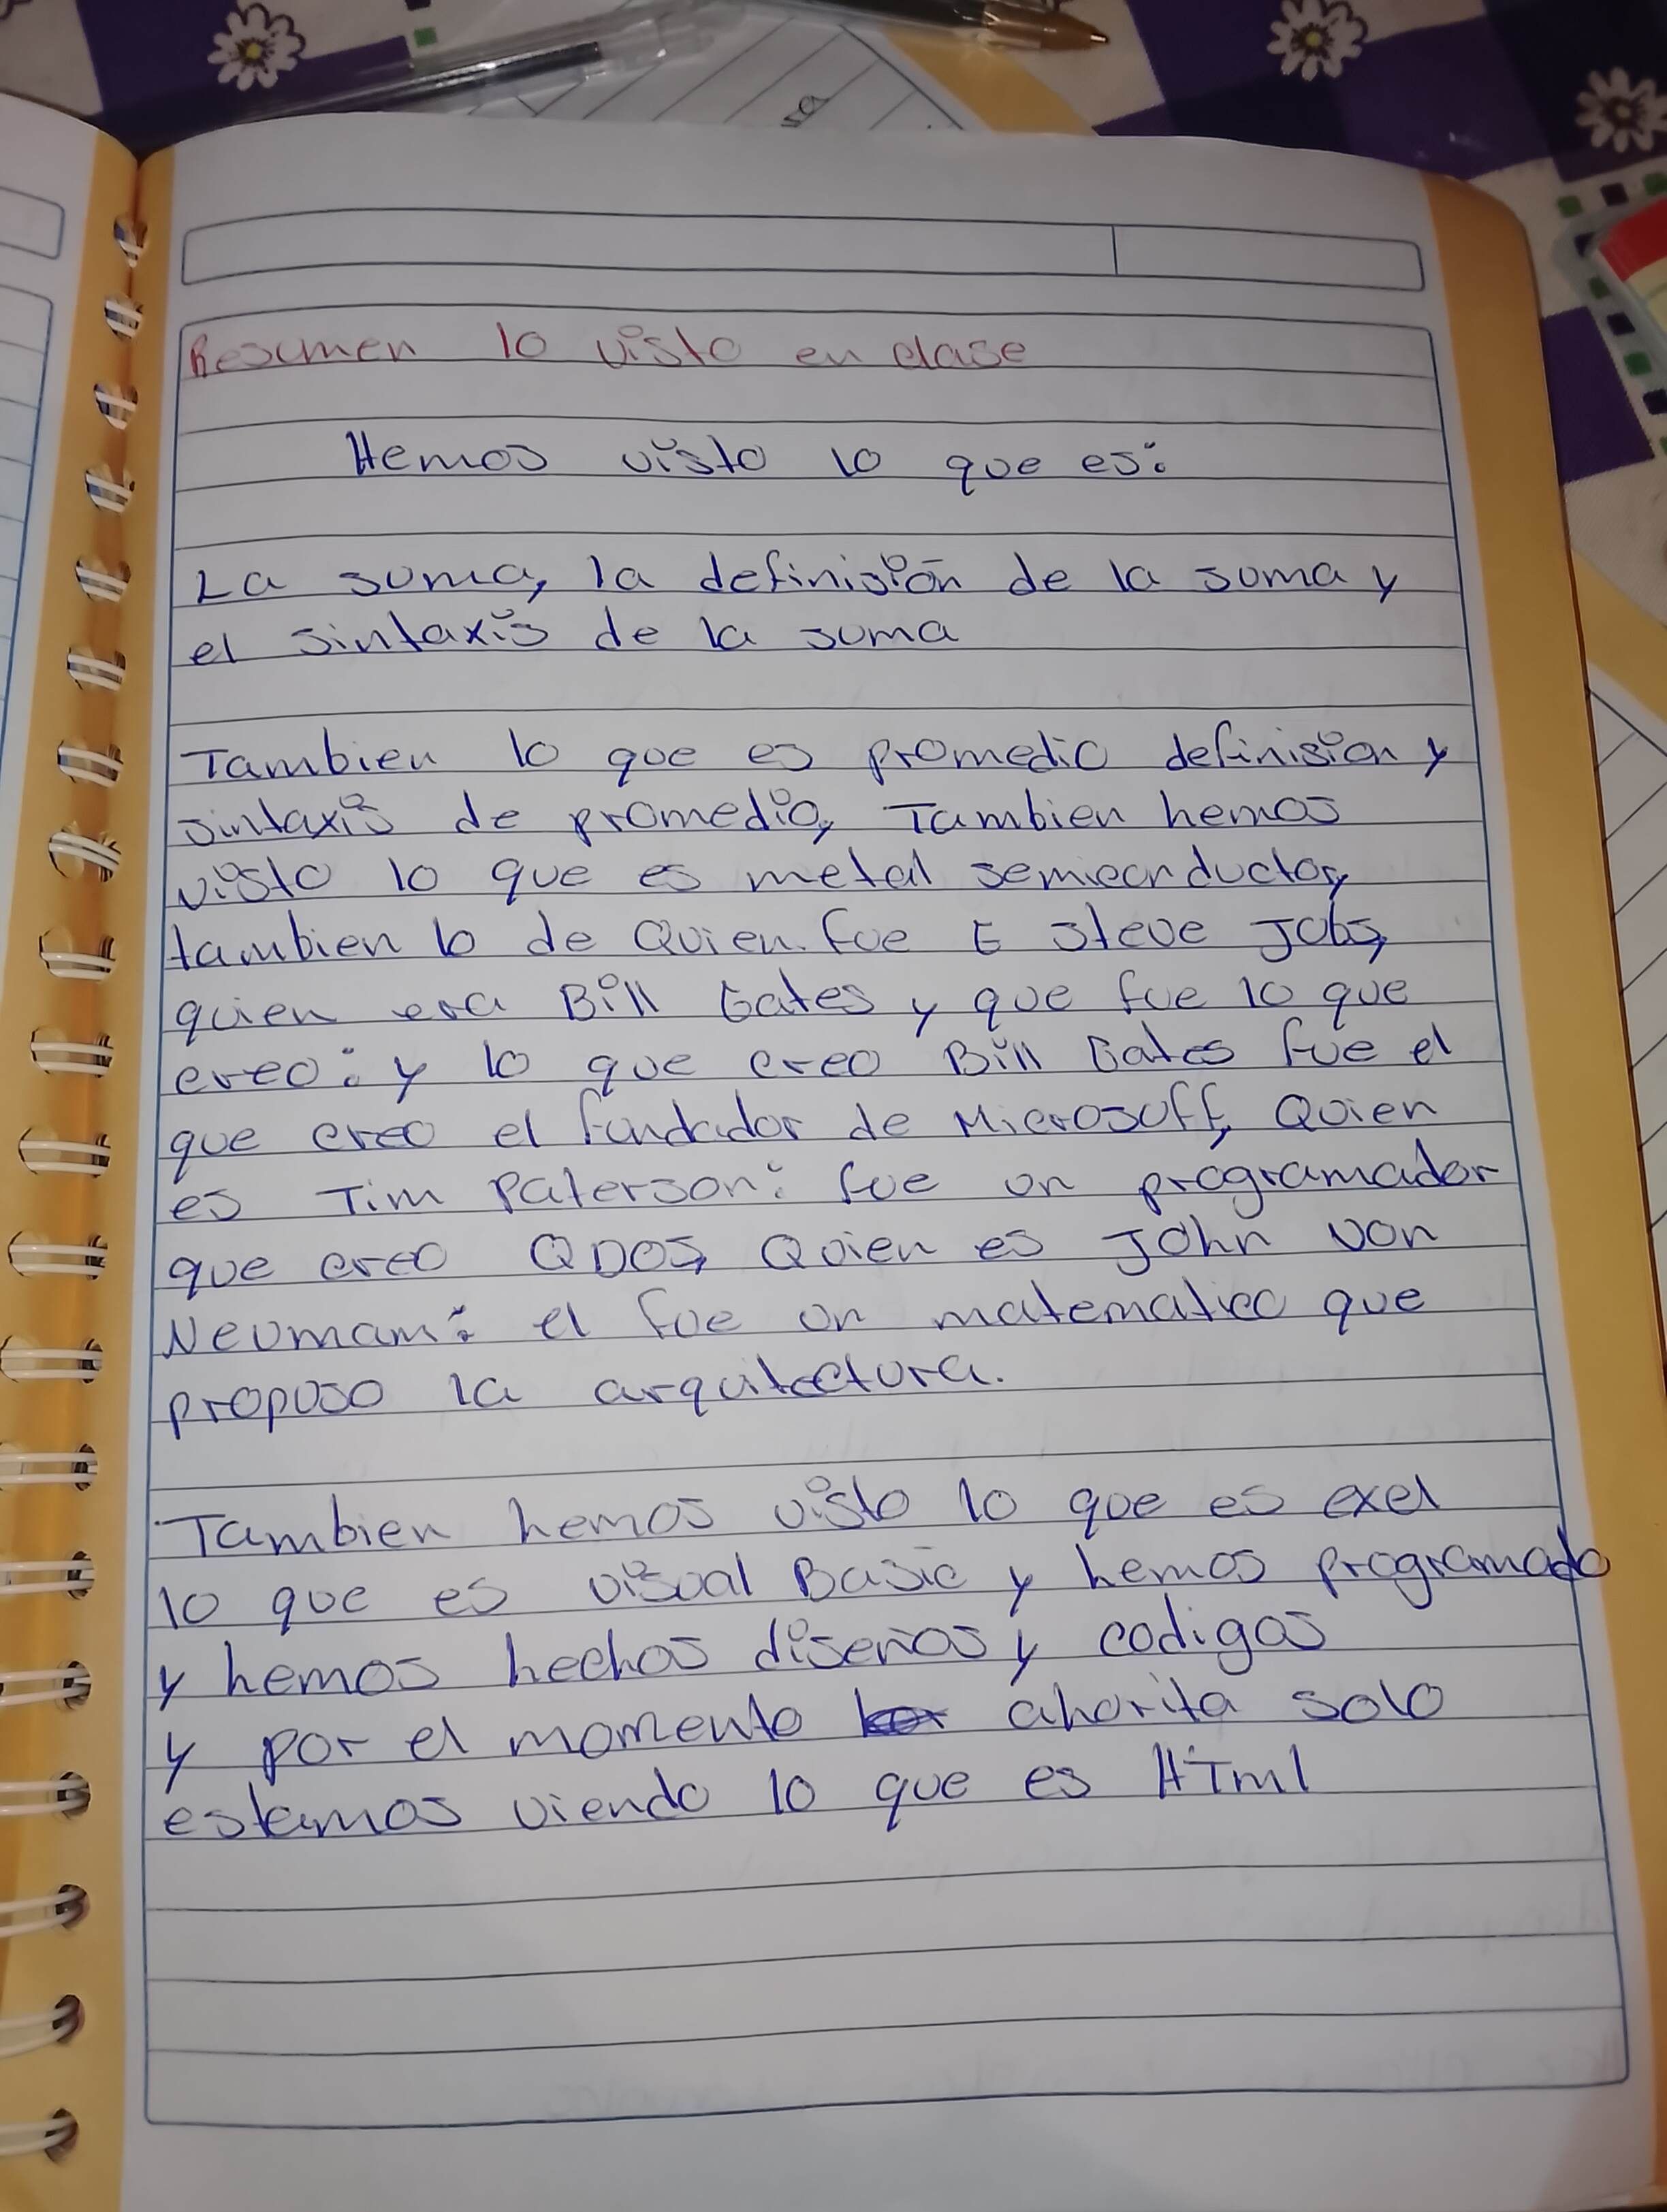 Resumen lo visto en clase
Hemos visto lo que es:
La suma, la definisión de la suma y
el sintaxis de la suma
Tambien lo que es promedio definision y
sintaxis de promedio, Tambien hemos
visto lo que es metal semiconductor,
tambien lo de Quien fue E steve Jobs,
quien era Bill Gates y que fue lo que
creo: y lo que creo Bill Gates fue el
que creo el fundador de Microsoff, Quien
es Tim Paterson: fue un programador
que creo QDOS, Quien es John von
Neumam: el fue un matematico que
propuso la arquitectura.
Tambien hemos visto lo que es exel
lo que es visual Basic y hemos programado
y hemos hechos diseños y codigos
y por el momento ahorita solo
estamos viendo lo que es HTml